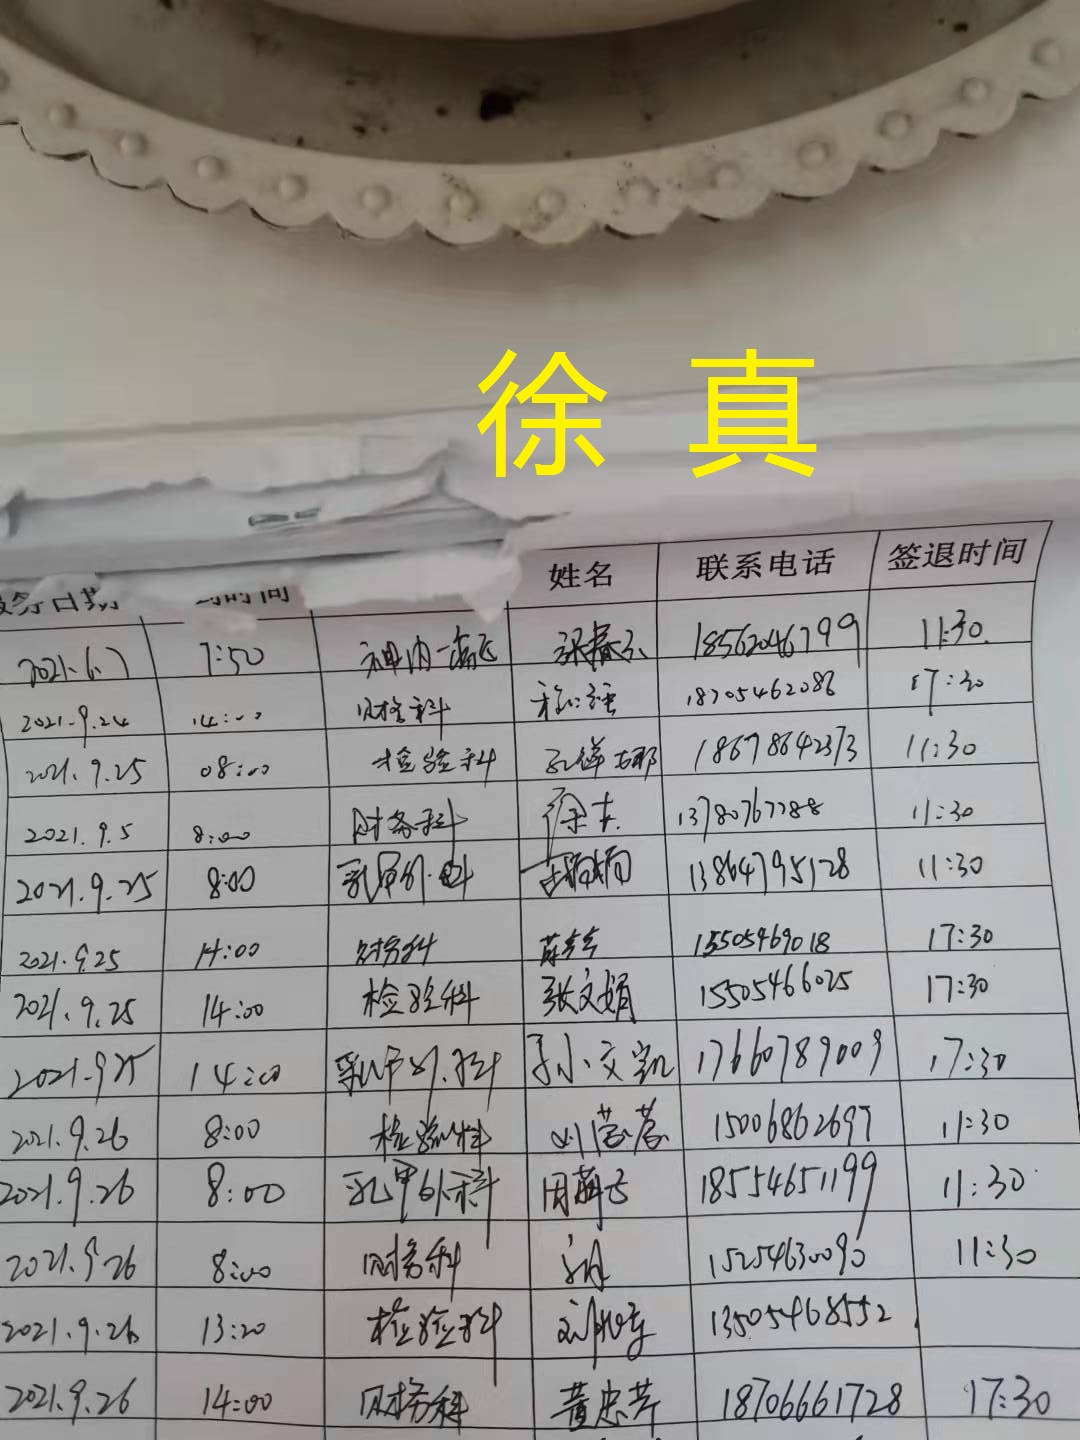 徐 真
务日期 时间 姓名 联系电话 签退时间
2021.6.7 7:50 神内一 18562046799 11:30
2021.9.24 14:00 财务科 18705462086 17:30
2021.9.25 08:00 检验科 18678642373 11:30
2021.9.5 8:00 财务科 徐真 13780767288 11:30
2021.9.25 8:00 乳甲外科 13864795128 11:30
2021.9.25 14:00 财务科 15505469018 17:30
2021.9.25 14:00 检验科 张文娟 15505466025 17:30
2021.9.25 14:00 乳甲外科 孙文凯 17660789009 17:30
2021.9.26 8:00 检验科 15006862697 11:30
2021.9.26 8:00 乳甲外科 18554651199 11:30
2021.9.26 8:00 财务科 15254630090 11:30
2021.9.26 13:20 检验科 13505468552
2021.9.26 14:00 财务科 黄忠芹 18706661728 17:30